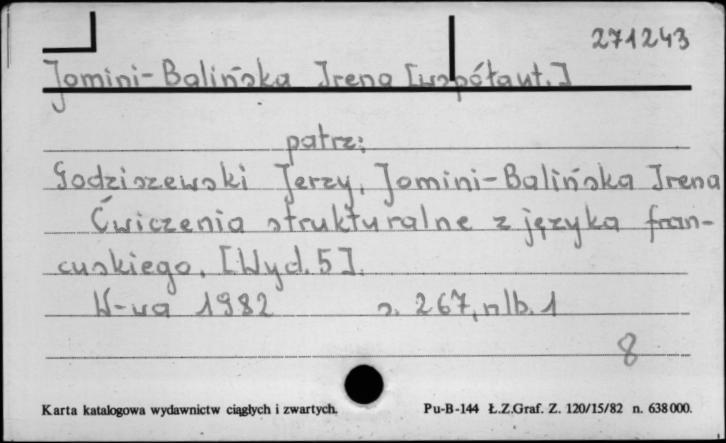 271243
Jomini-Balińska Irena [współaut.]
patrz:
Godziszewski Jerzy, Jomini-Balińska Irena
Ćwiczenia strukturalne z języka fran-
cuskiego. [Wyd. 5].
W-wa 1982 s. 267, nlb. 1
8
Karta katalogowa wydawnictw ciągłych i zwartych. Pu-B-144 Ł.Z.Graf. Z. 120/15/82 n. 638 000.